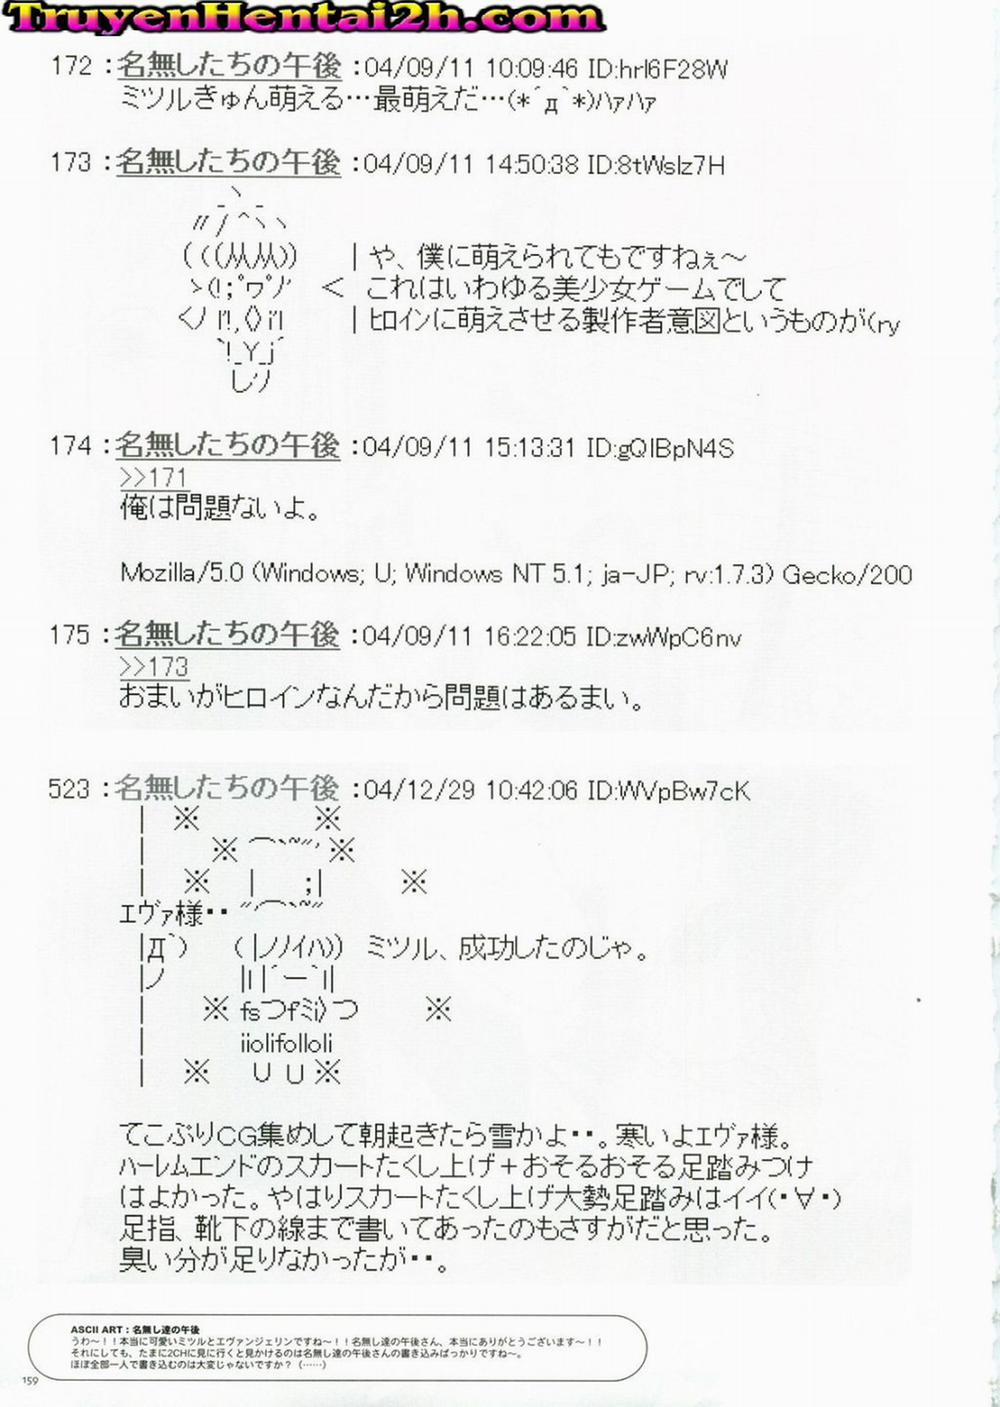 TruyenHentai2h.com
172 ：名無したちの午後 ：04/09/11 10:09:46 ID:hrl6F28W
ミツルきゅん萌える…最萌えだ…(*´д｀*)ﾊｧﾊｧ
173 ：名無したちの午後 ：04/09/11 14:50:38 ID:8tWslz7H
|や、僕に萌えられてもですねぇ～
＜ これはいわゆる美少女ゲームでして
|ﾋﾛｲﾝに萌えさせる製作者意図というものが(ry
174 ：名無したちの午後 ：04/09/11 15:13:31 ID:gQIBpN4S
>>171
俺は問題ないよ。
Mozilla/5.0 (Windows; U; Windows NT 5.1; ja-JP; rv:1.7.3) Gecko/200
175 ：名無したちの午後 ：04/09/11 16:22:05 ID:zwWpC6nv
>>173
おまいがヒロインなんだから問題はあるまい。
523 ：名無したちの午後 ：04/12/29 10:42:06 ID:WVpBw7cK
ｴｳﾞｧ様・・
|Д｀) ( |ノノイハ)) ミツル、成功したのじゃ。
てこぶりCG集めして朝起きたら雪かよ・・。寒いよｴｳﾞｧ様。
ﾊｰﾚﾑエンドのスカートたくし上げ＋おそるおそる足踏みつけ
はよかった。やはりスカートたくし上げ大勢足踏みはイイ(・∀・)
足指、靴下の線まで書いてあったのもさすがだと思った。
臭い分が足りなかったが・・。
ASCII ART：名無し達の午後
うわ～！！本当に可愛いミツルとエヴァンジェリンですね～！！名無し達の午後さん、本当にありがとうございます～！！
それにしても、たまに2CHに見に行くと見かけるのは名無し達の午後さんの書き込みばっかりですね～。
ほぼ全部一人で書き込むのは大変じゃないですか？（……）
159